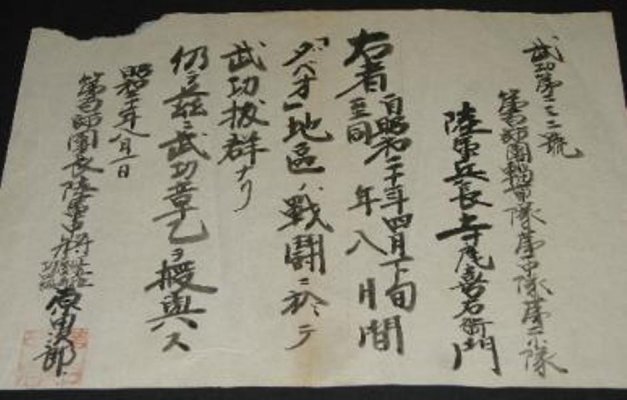 武功第 號
第百師團 隊第 中隊第二小隊
陸軍兵長寺尾喜右衛門
右者自昭和二十年四月下旬
至同年八月間
「ダベオ」地區ノ戰鬪ニ於テ
武功拔群ナリ
仍テ茲ニ武功章乙ヲ授與ス
昭和二十年八月一日
第百師團長陸軍中將 原田次郎